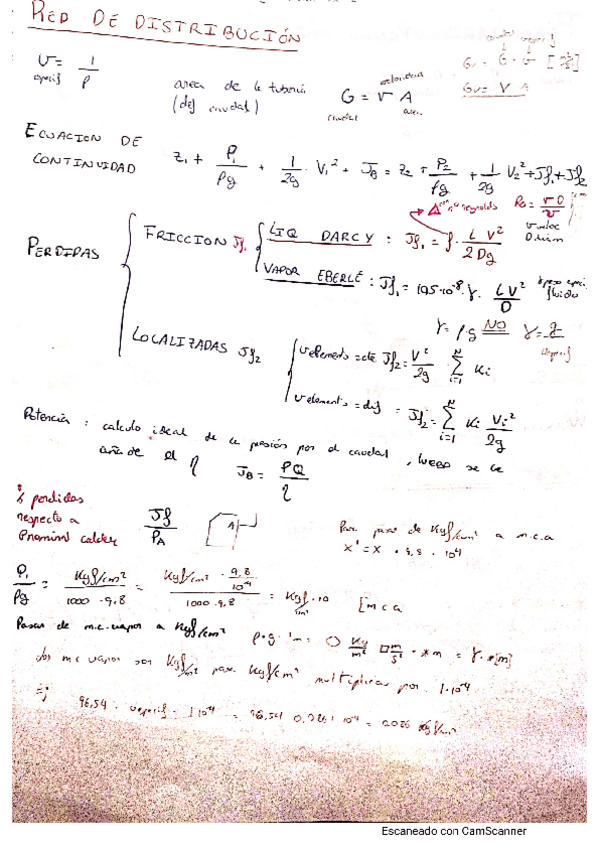 RED DE DISTRIBUCIÓN
v = 1/ρ
especif
area de la tuberia
(def caudal)
G = v A
caudal area
Gv = V A
ECUACION DE
CONTINUIDAD
z₁ + P₁/ρg + 1/2g · V₁² + J_B = z₂ + P₂/ρg + 1/2g V₂² + Jf₁ + Jf₂
nº reynolds Re = vD/v
v veloc
D diam
PERDIDAS
FRICCION Jf₁
LIQ DARCY : Jf₁ = f · L V²/2Dg
VAPOR EBERLE : Jf₁ = 10,5·10⁻⁸ · γ · LV²/D
γ peso espe
fluido
γ = ρ·g NO γ = g/v especif
LOCALIZADAS Jf₂
v elemento = cte Jf₂ = V²/2g Σ i=1 N Ki
v elemento = dif = Jf₂ = Σ i=1 N Ki Vi²/2g
Potencia : calculo ideal de la presión por el caudal, luego se le
añade el η J_B = PQ/η
% perdidas
respecto a
Pnominal caldera
Jf/PA
A
Para pasar de Kgf/cm² a m.c.a
x' = x · 9,8 · 10⁴
P₁/ρg = Kgf/cm²/1000 · 9,8 = Kgf/cm² · 9,8/10⁻⁴/1000 · 9,8 = Kgf/cm² · 10 [mca
Pasar de m.c.vapor a Kgf/cm² ρ·g·m = Kg/m³ m/s² · m = γ · [m]
los m c vapor son Kgf/m² para Kgf/cm² multiplicar por 1·10⁻⁴
96,54 · vespecif · 1·10⁻⁴ = 96,54 10⁻⁴ = 0,026 Kgf/cm²
Escaneado con CamScanner